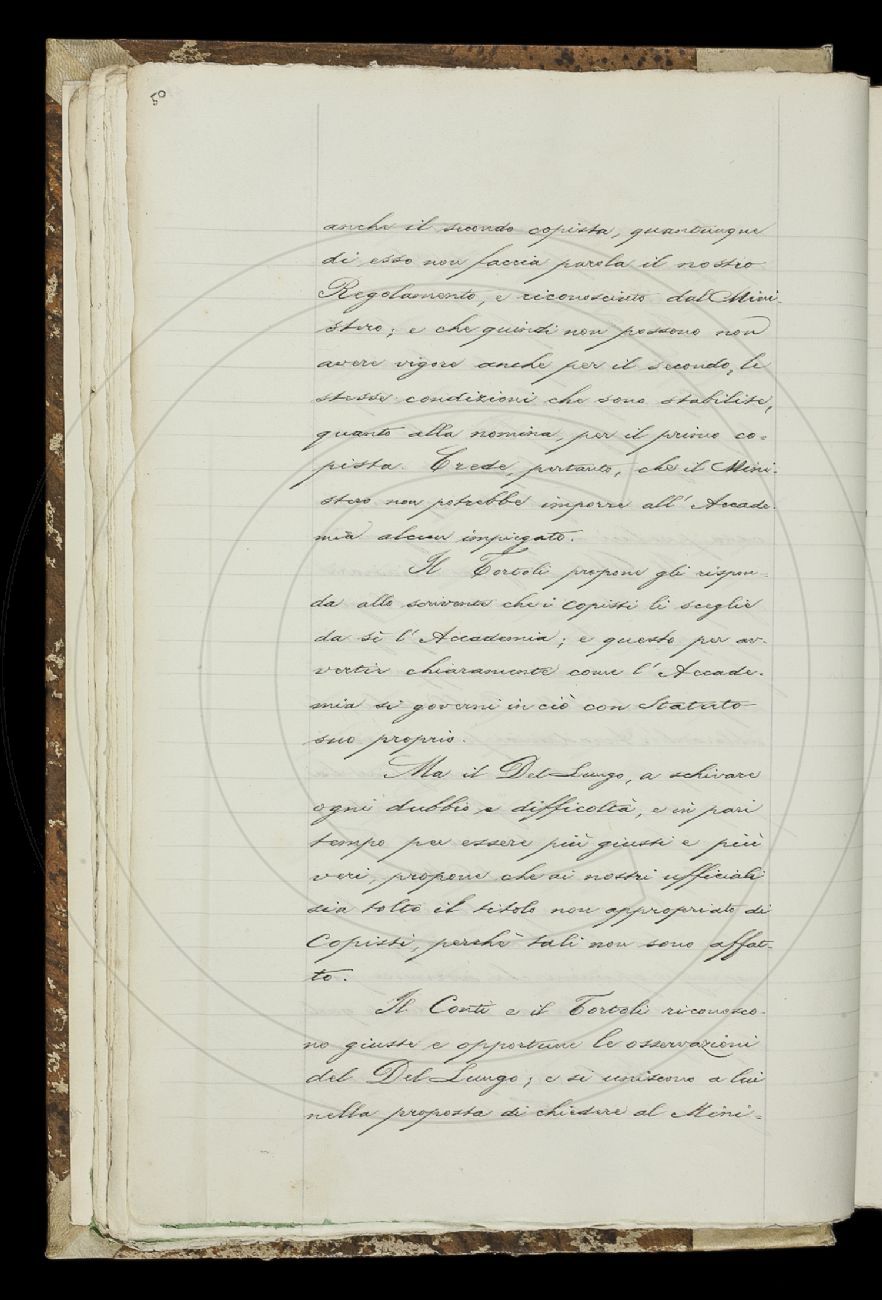 50
anche il secondo copista, quantunque
di esso non faccia parola il nostro
Regolamento, e riconosciuto dal Mini-
stero; e che quindi non possono non
avere vigore anche per il secondo, le
stesse condizioni che sono stabilite,
quanto alla nomina, per il primo co=
pista. Crede, pertanto, che il Mini-
stero non potrebbe imporre all' Accade-
mia alcun impiegato.
Il Tortoli propone gli rispon-
da allo scrivente che i copisti li sceglie
da sè l' Accademia; e questo per av-
vertir chiaramente come l' Accade-
mia si governi in ciò con Statuto
suo proprio.
Ma il Del Lungo, a schivare
ogni dubbio e difficoltà, e in pari
tempo per essere più giusti e più
veri, propone che ai nostri ufficiali
sia tolto il titolo non appropriato di
Copisti, perchè tali non sono affat-
to.
Il Conti e il Tortoli riconosco-
no giuste e opportune le osservazioni
del Del Lungo; e si uniscono a lui
nella proposta di chiedere al Mini=